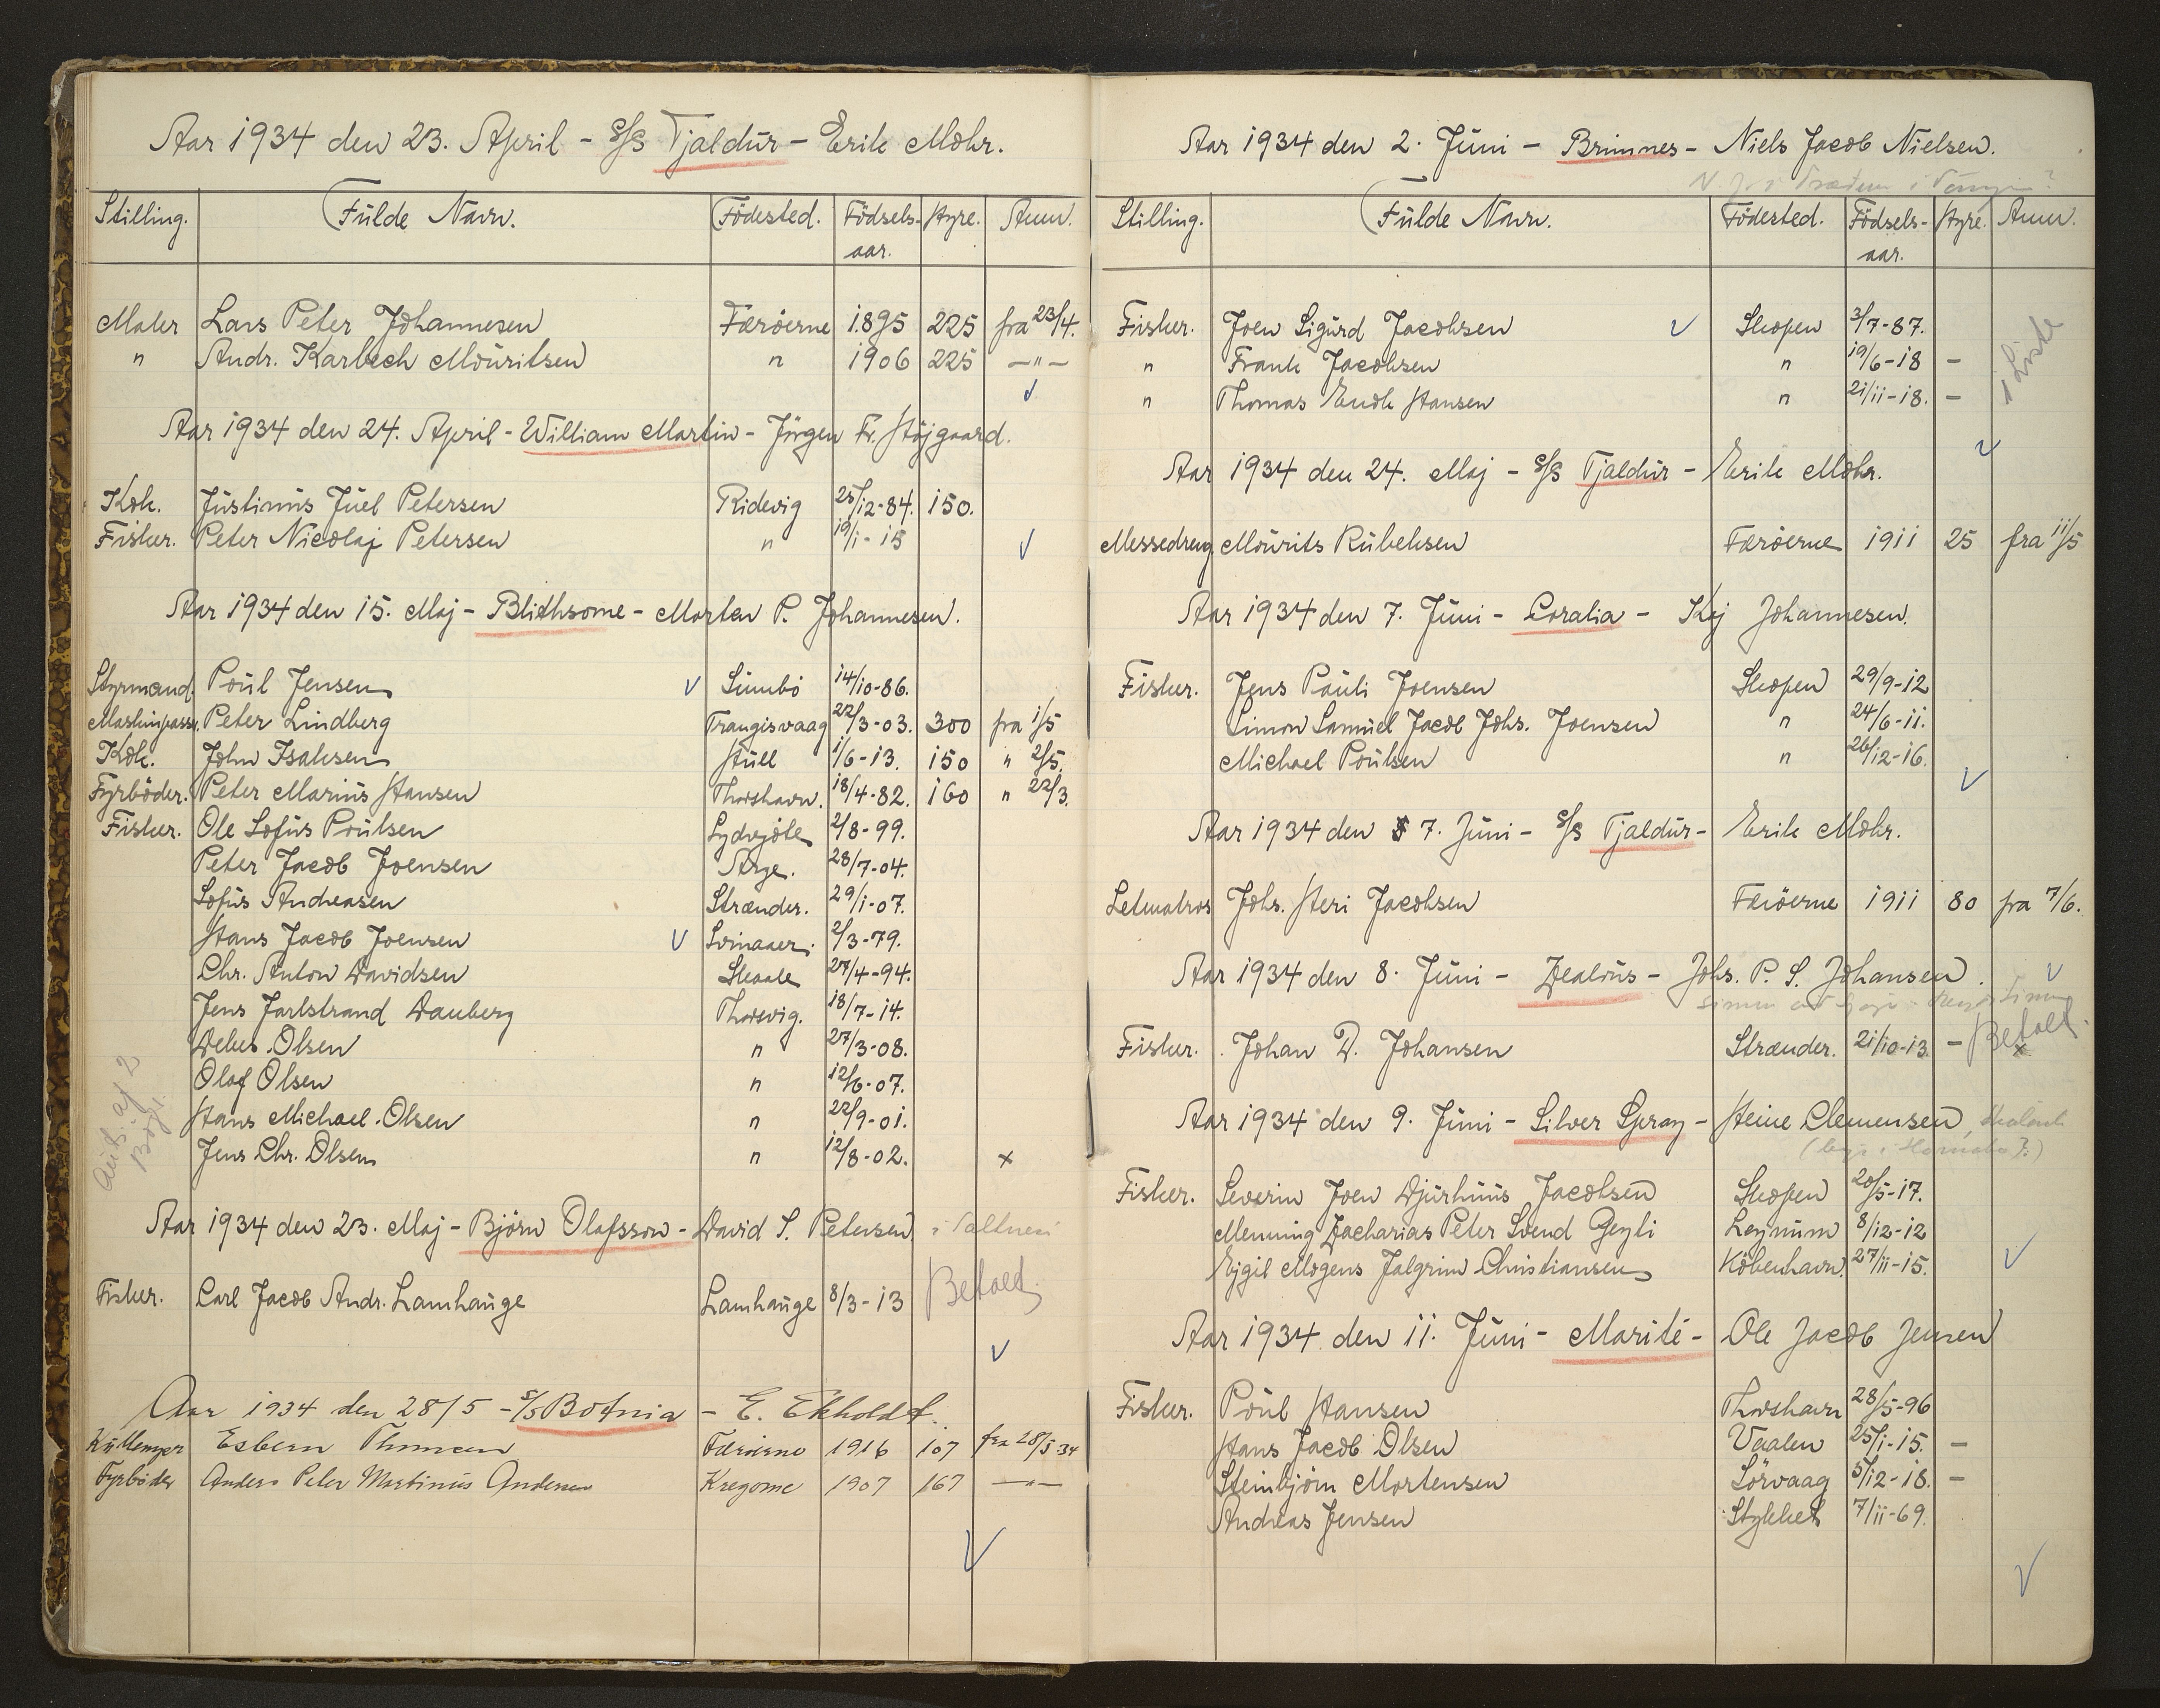 Aar 1934 den 23. April - S/S Tjaldur - Erik Mohr.
Stilling. Fulde Navn. Födested. Födsels-aar. Hyre. Anm.
Maler Lars Peter Johannesen Færöerne 1895 225 fra 23/4.
" Andr. Karbech Mouritsen " 1906 225 -"-
Aar 1934 den 24. April - William Martin - Jörgen Fr. Höjgaard.
Kok. Justinus Juel Petersen Ridevig 25/12-84. 150.
Fisker. Peter Nicolaj Petersen " 19/1-15
Aar 1934 den 15. Maj - Blithsome - Morten P. Johannesen.
Styrmand. Poul Jensen Sumbö 14/10-86.
Maskinpass. Peter Lindberg Trangisvaag 22/3-03. 300 fra 1/5
Kok. John Isaksen Hull 1/6-13. 150 " 2/5.
Fyrböder. Peter Marius Hansen Thorshavn. 18/4-82. 160 " 22/3.
Fisker. Ole Sofus Poulsen Sydrejöte 2/8-99.
Peter Jacob Joensen Arge. 28/7-04.
Sofus Andreasen Strænder. 29/1-07.
Hans Jacob Joensen Svinaaer. 2/3-79.
Chr. Anton Davidsen Skaale 27/4-94.
Jens Jarlstrand Dauberg Thorsvig. 18/7-14.
Debes Olsen " 27/3-08.
Olaf Olsen " 12/6-07.
Hans Michael Olsen " 22/9-01.
Jens Chr. Olsen " 12/8-02. x
af 2
Aar 1934 den 23. Maj - Björn Olafsson - David S. Petersen i Saltnesi
Fisker. Carl Jacob Andr. Lamhauge Lamhauge 8/3-13 Betalt
Aar 1934 den 28/5 - S/S Botnia - E. Ekholdt.
Kullemper Esbern Færöerne 1916 107 fra 28/5 34
Fyrböder Anders Peter Martinus Andersen Kregome 1907 167 -"-
Aar 1934 den 2. Juni - Brimnes - Niels Jacob Nielsen.
Stilling. Fulde Navn. Födested. Födsels-aar. Hyre. Anm.
Fisker. Joen Sigurd Jacobsen Skopen 3/7-87.
" Frank Jacobsen " 19/6-18 -
" Thomas Enok Hansen " 21/11-18. -
1 Liste
Aar 1934 den 24. Maj - S/S Tjaldur - Erik Mohr.
Messedreng Mourits Rubeksen Færöerne 1911 25 fra 11/5
Aar 1934 den 7. Juni - Coralia - Kaj Johannesen.
Fisker. Jens Pauli Joensen Skopen 29/9-12
Simon Samuel Jacob Johs. Joensen " 24/6-11.
Michael Poulsen " 26/12-16.
Aar 1934 den 7. Juni - S/S Tjaldur - Erik Mohr.
Letmatros Johs. Heri Jacobsen Færöerne 1911 80 fra 7/6.
Aar 1934 den 8. Juni - Zealous - Johs. P. S. Johansen.
Fisker. Johan D. Johansen Strænder. 21/10-13. - Betalt x
Aar 1934 den 9. Juni - Silver Spray - Heine Clemensen
Fisker. Severin Joen Djurhuus Jacobsen Skopen 20/5-17.
Menning Zacharias Peter Svend Geyti Leynum 8/12-12
Ejgil Mogens Jalgrim Christiansen Köbenhavn. 27/11-15.
Aar 1934 den 11. Juni - Marité - Ole Jacob Jensen
Fisker. Poul Hansen Thorshavn 28/5-96
Hans Jacob Olsen Vaalen 25/1-15. -
Steinbjörn Mortensen Sörvaag 5/12-18. -
Andreas Jensen Stykket 7/11-69.